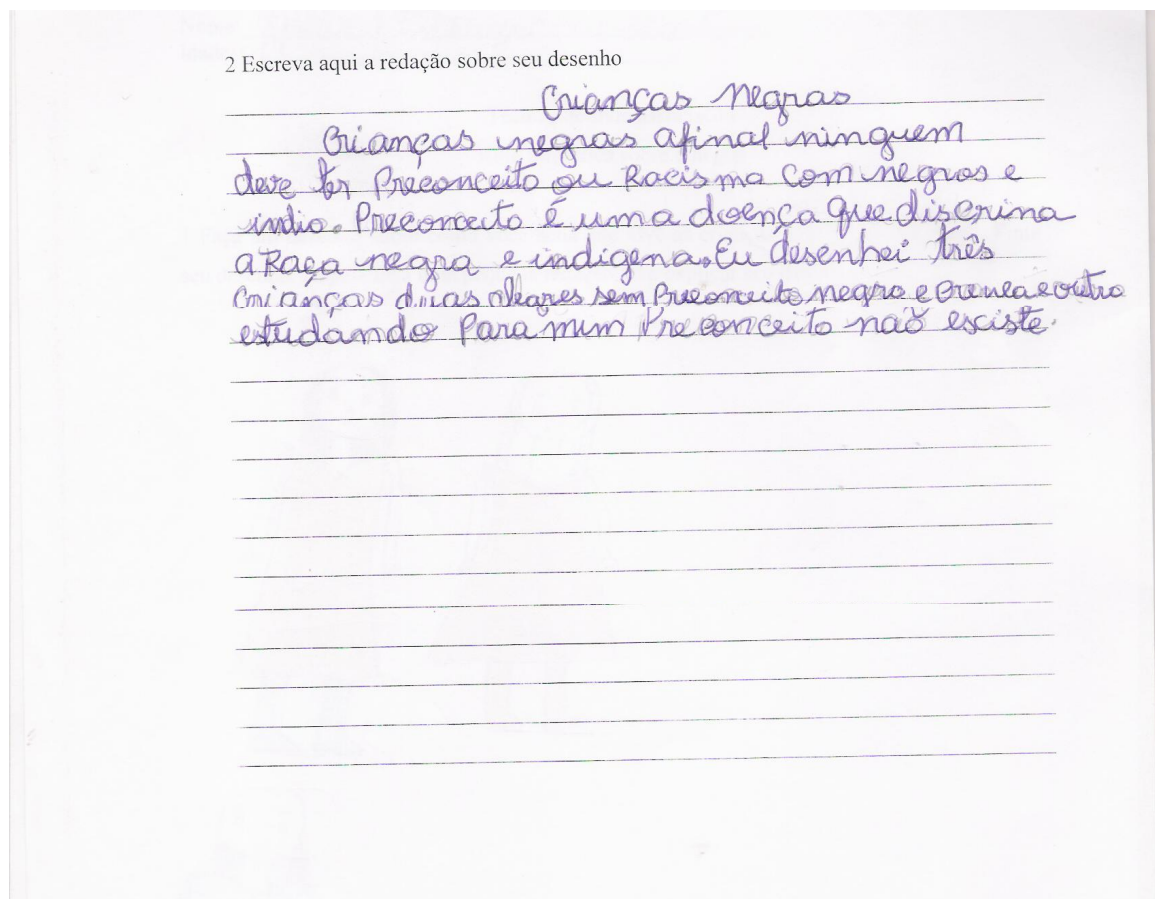 2 Escreva aqui a redação sobre seu desenho
Crianças negras
Crianças negras afinal ninguem
deve ter Preconceito ou Racisma com negros e
indio. Preconceito é uma doença que discrina
a Raça negra e indigena. Eu desenhei três
Crianças duas sem Preconceito negro e e outro
estudando Para mim Preconceito não esciste.